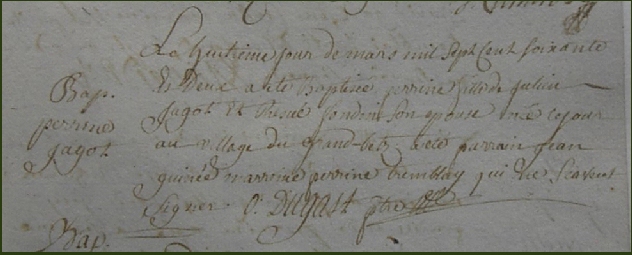 Le huitieme jour de mars mil sept cent soixante
et deux a été Baptisée perrine fille de julien
Jagot et Renée son epouse née ce jour
au village du grand parrain jean
guinée marraine perrine tremblay qui ne scavent
signer. O. Dugast ptre
Bap.
perrine
Jagot
Bap.